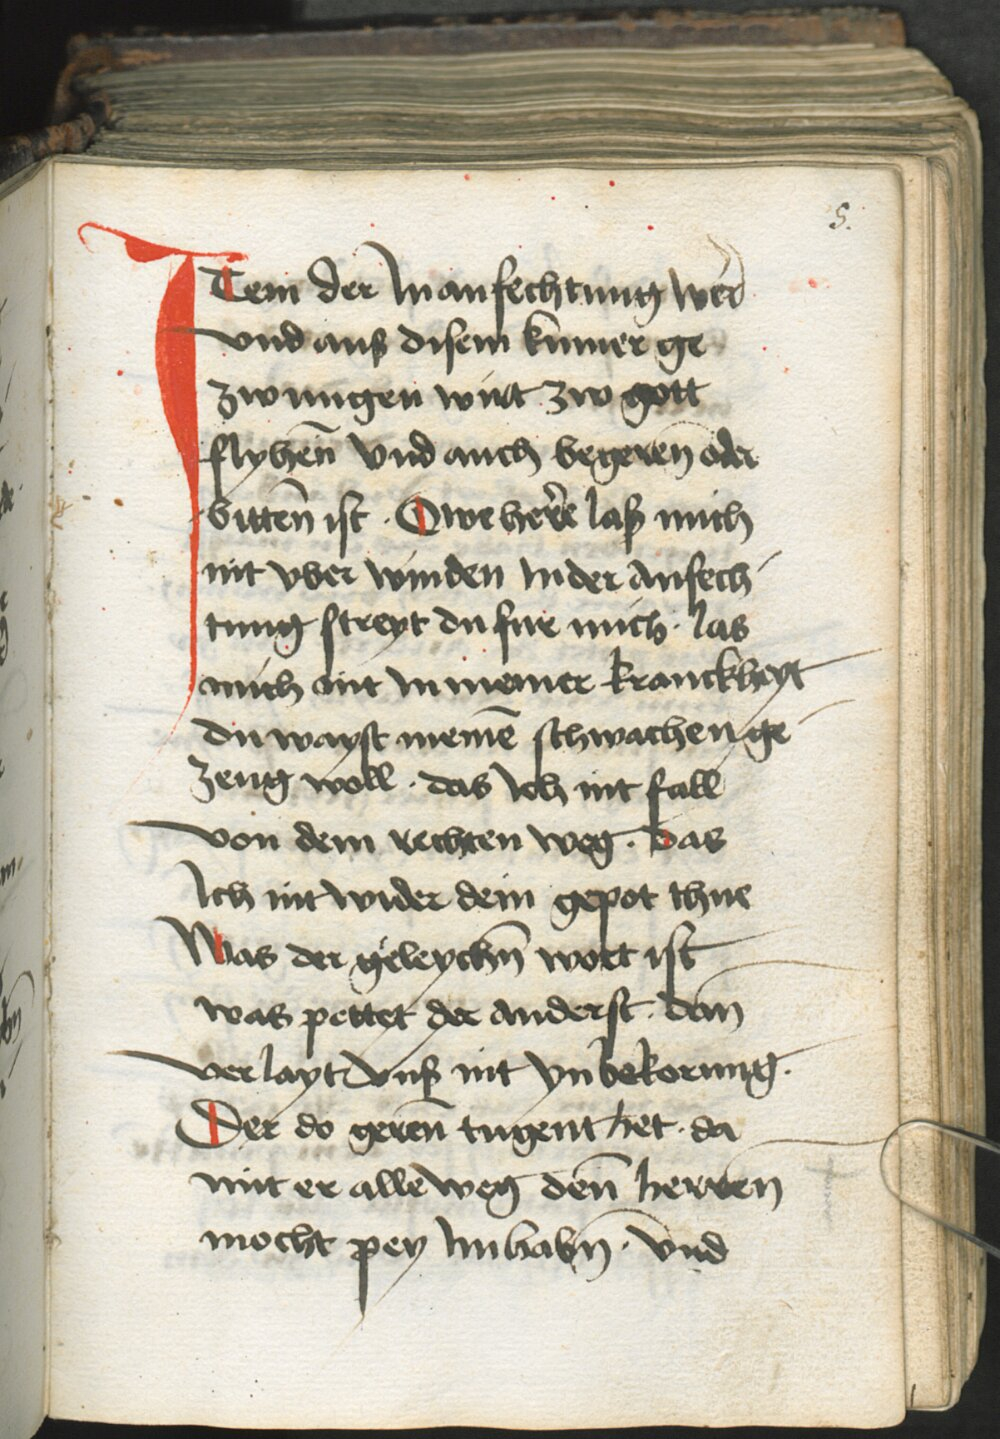 5.
ITem der In anfechtung wer
vnd auß disem kumer ge
zwungen wirt zw gott
flyhen̄ vnd auch begeren oder
bitten̄ ist · O we her̄e laß mich
nit vber winden In der anfech
tung streyt du fur mich · las
mich nit In meiner kranckheyt
du wayst meinē schwachen ge
zeug woll · das Ich nit fall
von dem rechten weg · Das
Ich nit wider dein gepot thue
Was der geleychn̄ wort ist
was pettet der anderst · dan̄
verlayt vnß nit yn bekorung ·
Der do geren̄ tugent het · da
mit er alle weg den̄ herren
mocht pey Im habn̄ · vnd